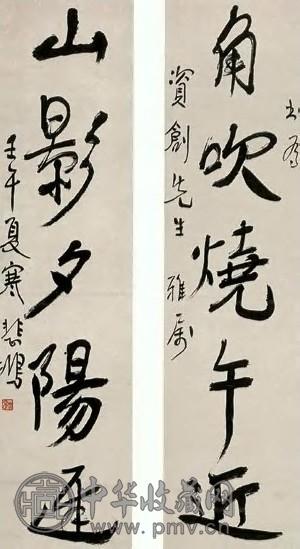 角吹燒午近
資創先生 雅屬
山影夕陽遲
壬午夏寒 悲鴻
中华收藏网
www.pmv.cn